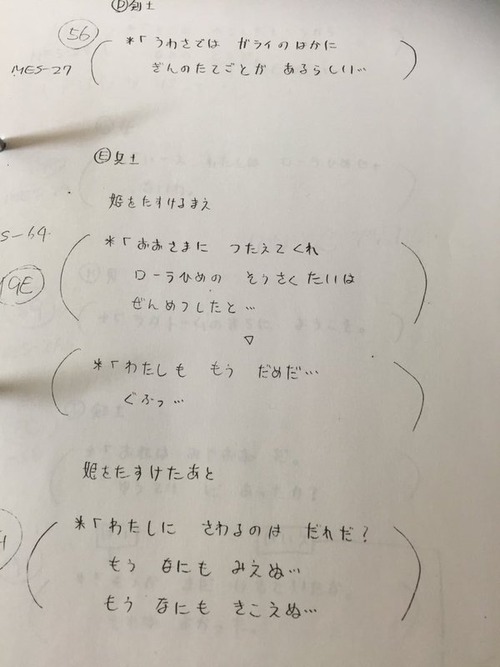 Ⓓ剣士
56
*「うわさでは ガライのはかに
MES-27
ぎんのたてごとが あるらしい…
Ⓔ兵士
姫をたすけるまえ
S-64
*「おおさまに つたえてくれ
19E
ローラひめの そうさくたいは
ぜんめつしたと…
▽
*「わたしも もう だめだ…
ぐふっ…
姫をたすけたあと
*「わたしに さわるのは だれだ?
もう なにも みえぬ…
もう なにも きこえぬ…